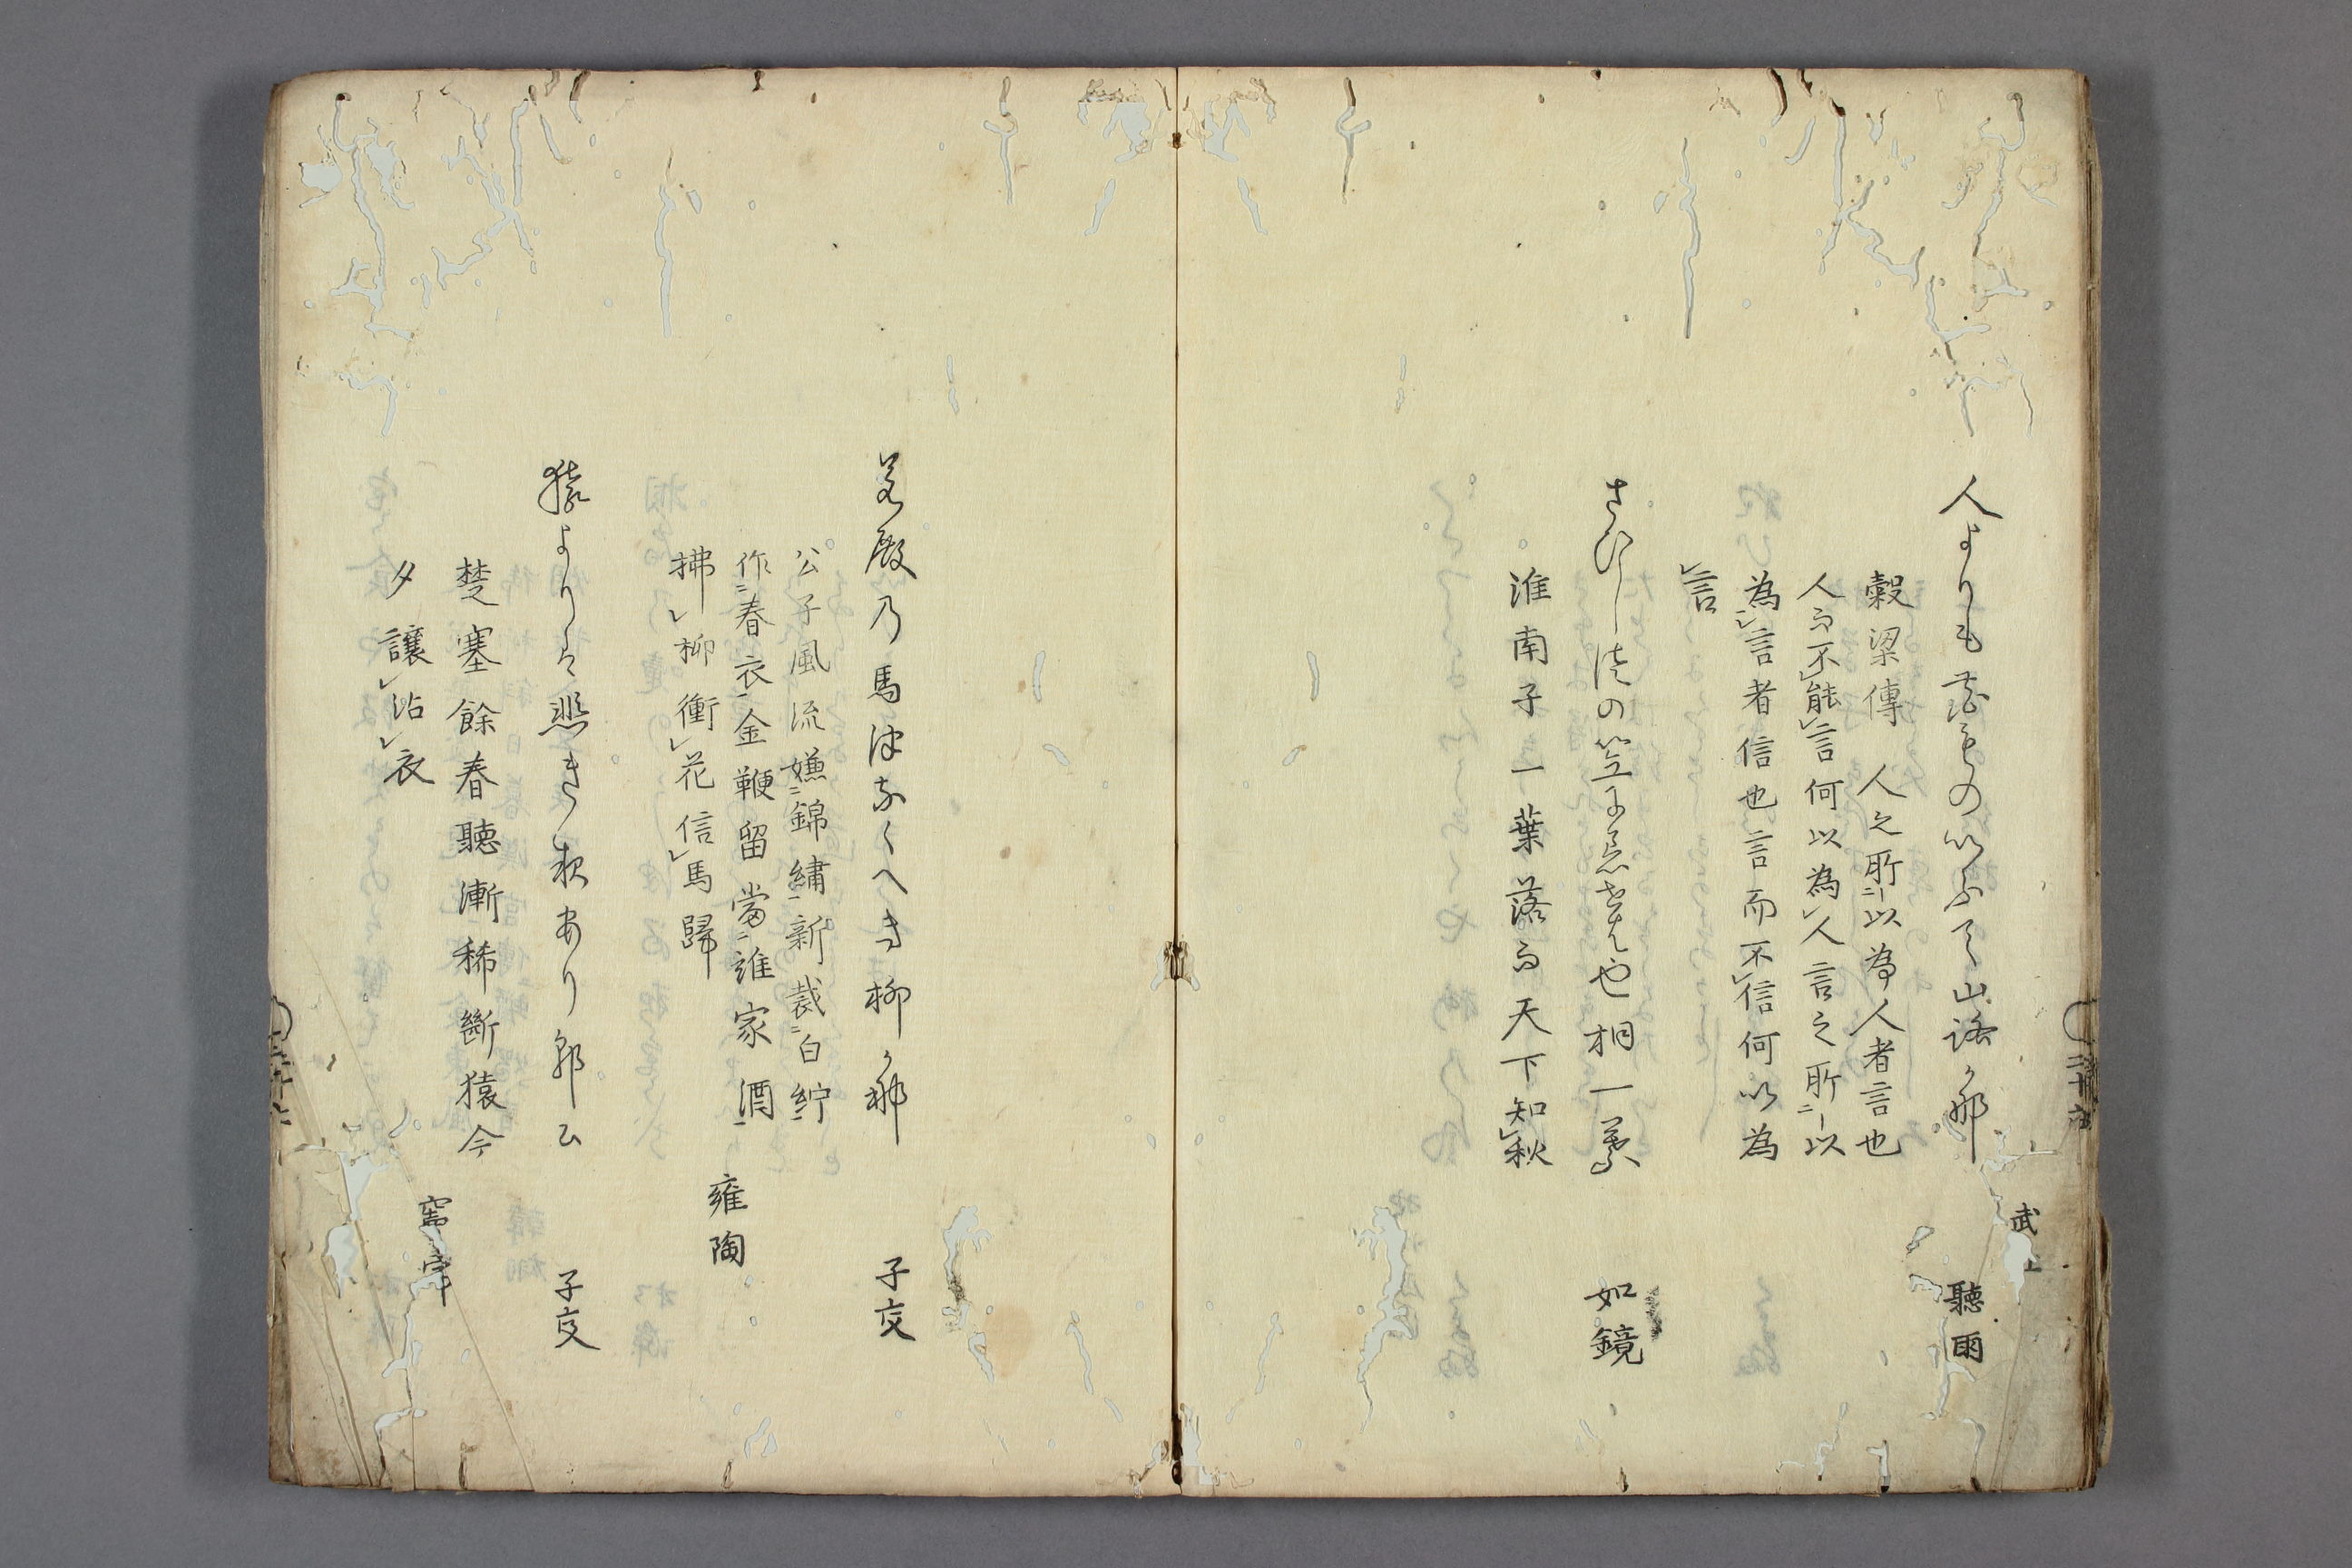 人よりも花ものいふて山路哉
武上
聴雨
穀梁傳　人之所以為人者言也
人而不能言何以為人言之所以
為言者信也言而不信何以為
言
さひしさの笠に
や桐一葉
如鏡
淮南子一葉落而天下知秋
若殿乃馬津なくへき柳哉
子交
公子風流嫌錦繡新裁白紵
作春衣金鞭留當誰家酒
拂柳衝花信馬歸
雍陶
猿よりも悲き
あり郭公
子交
楚塞餘春聽漸稀斷猿今
夕讓沾衣
竇